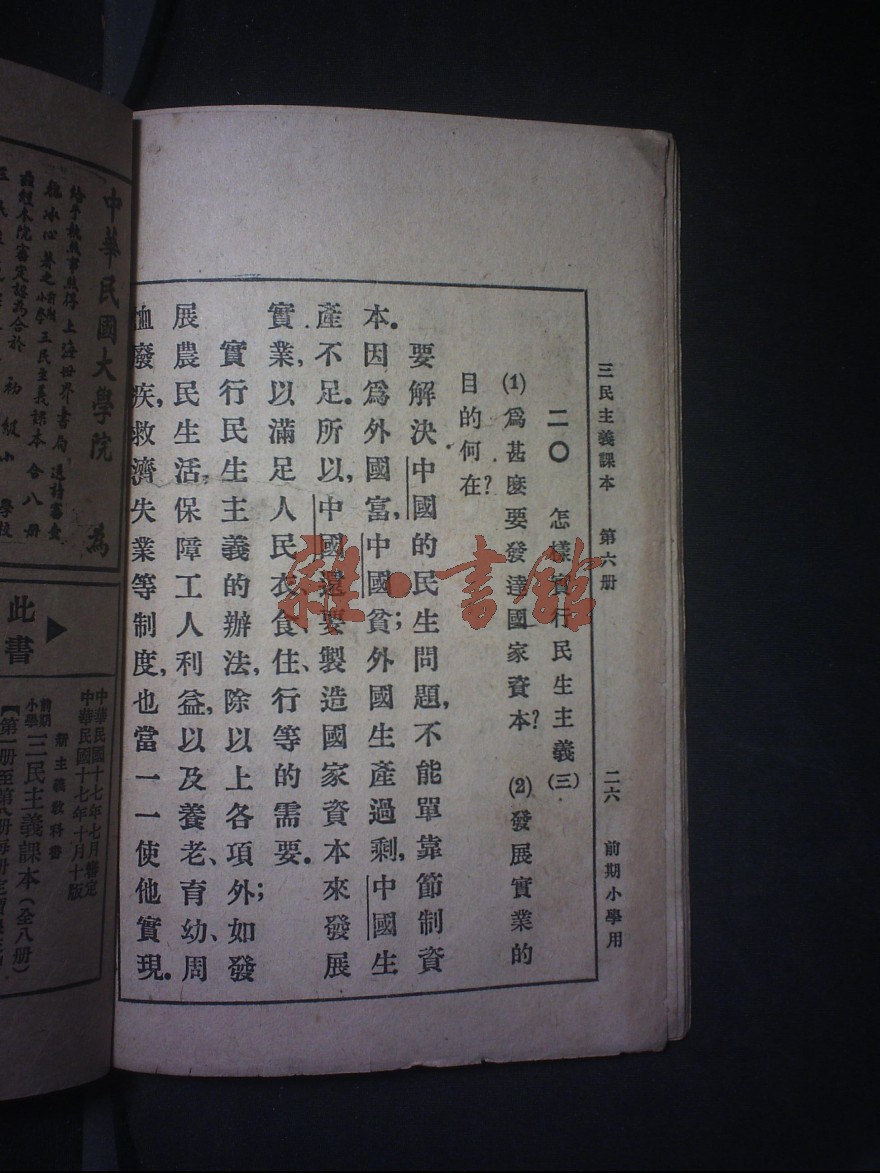 三民主義課本 第六册 二六 前期小學用
二〇 怎樣實行民生主義(三)
(1)爲甚麽要發達國家資本? (2)發展實業的
目的何在?
要解決中國的民生問題,不能單靠節制資
本。因爲外國富,中國貧;外國生產過剩,中國生
產不足。所以,中國還要製造國家資本來發展
實業,以滿足人民衣、食、住、行等的需要。
實行民生主義的辦法,除以上各項外;如發
展農民生活,保障工人利益,以及養老、育幼、周
恤廢疾,救濟失業等制度,也當一一使他實現。
雜·書館
中華民國大學院 爲
上海世界書局
小學三民主義課本合八册
經本院審定認爲合於初級小學校
此書
中華民國十七年七月審定
中華民國十七年十月十版
新主義教科書
前期小學三民主義課本(全八册)